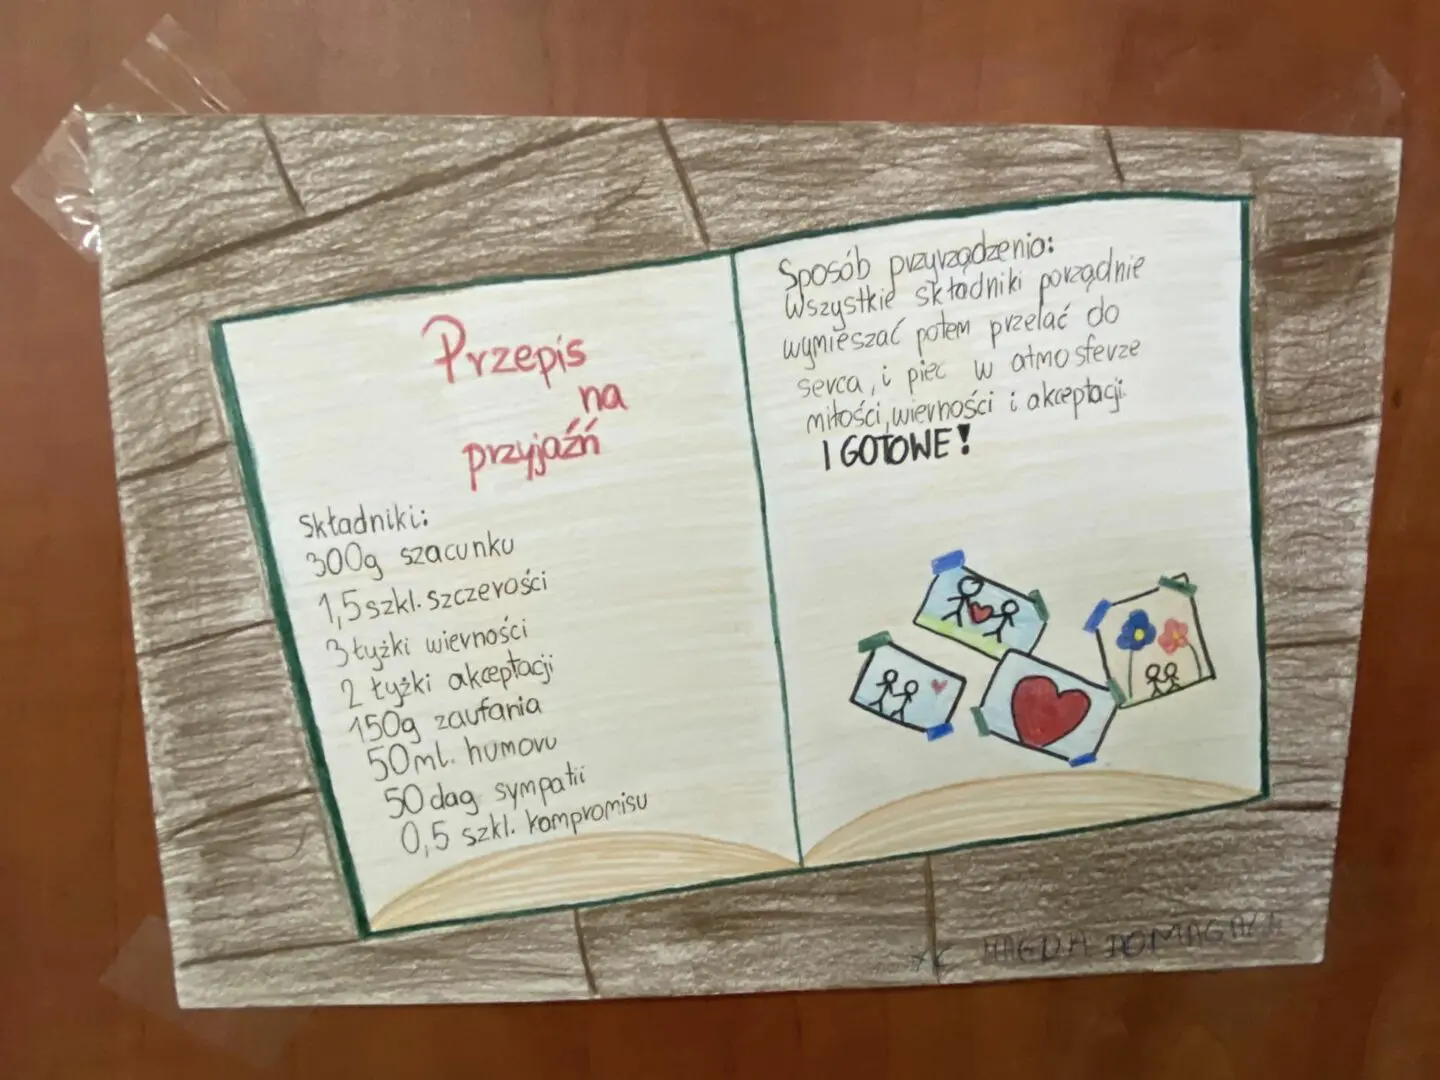 Przepis
na
przyjaźń
Składniki:
300g szacunku
1,5 szkl. szczerości
3 łyżki wierności
2 łyżki akceptacji
150g zaufania
50ml. humoru
50 dag sympatii
0,5 szkl. kompromisu
Sposób przyrządzenia:
Wszystkie składniki porządnie
wymieszać potem przelać do
serca, i piec w atmosferze
miłości, wierności i akceptacji.
I GOTOWE!
MAGDA DOMAGAŁA